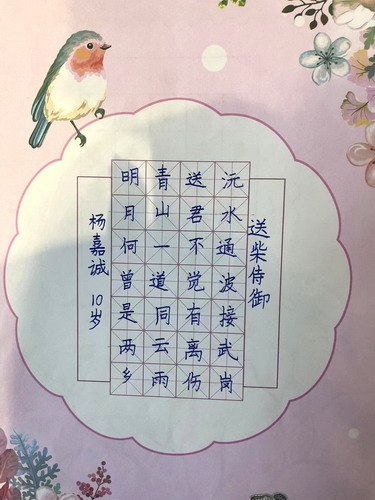 送柴侍御
沅水通波接武岗
送君不觉有离伤
青山一道同云雨
明月何曾是两乡
杨嘉诚 10岁